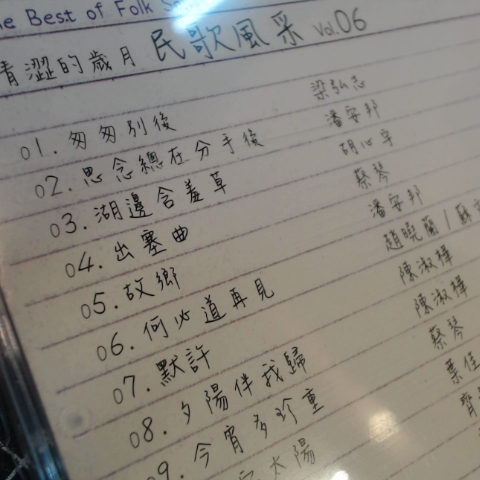 he Best of Folk S
青澀的歲月 民歌風采 Vol.06
01. 匆匆別後 梁弘志
02. 思念總在分手後 潘安邦
03. 湖邊含羞草 胡心幸
04. 出塞曲 蔡琴
05. 故鄉 潘安邦
06. 何必道再見 趙曉蘭 /
07. 默許 陳淑樺
08. 夕陽伴我歸 陳淑樺
09. 今宵多珍重 蔡琴
太陽 葉佳
齊